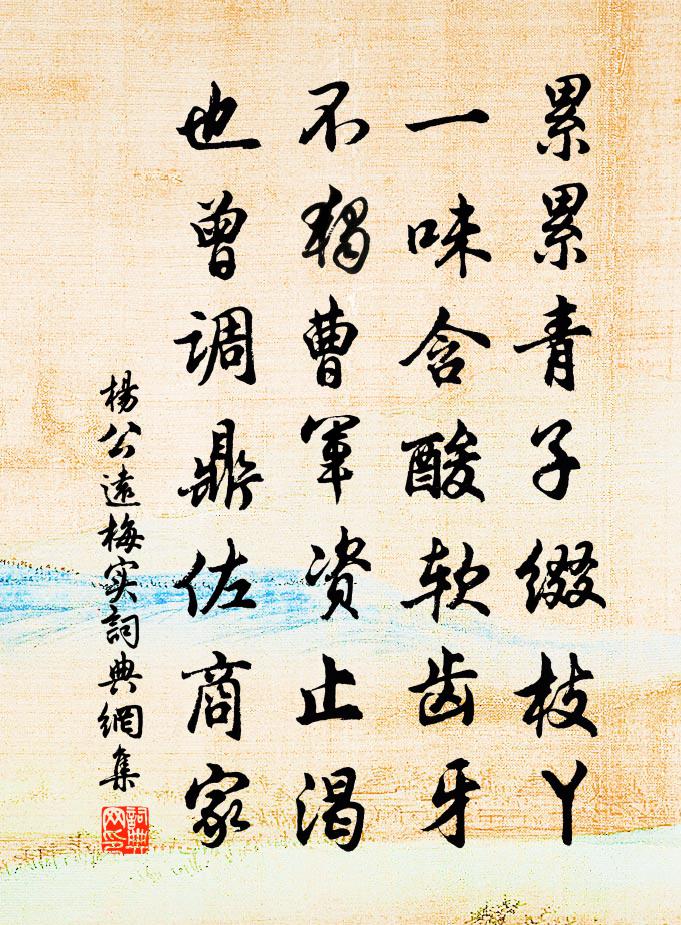 累累青子缀枝丫
一味含酸软齿牙
不独曹军资止渴
也曾调鼎佐商家
楊公遠梅实詞典網集
詞典网印